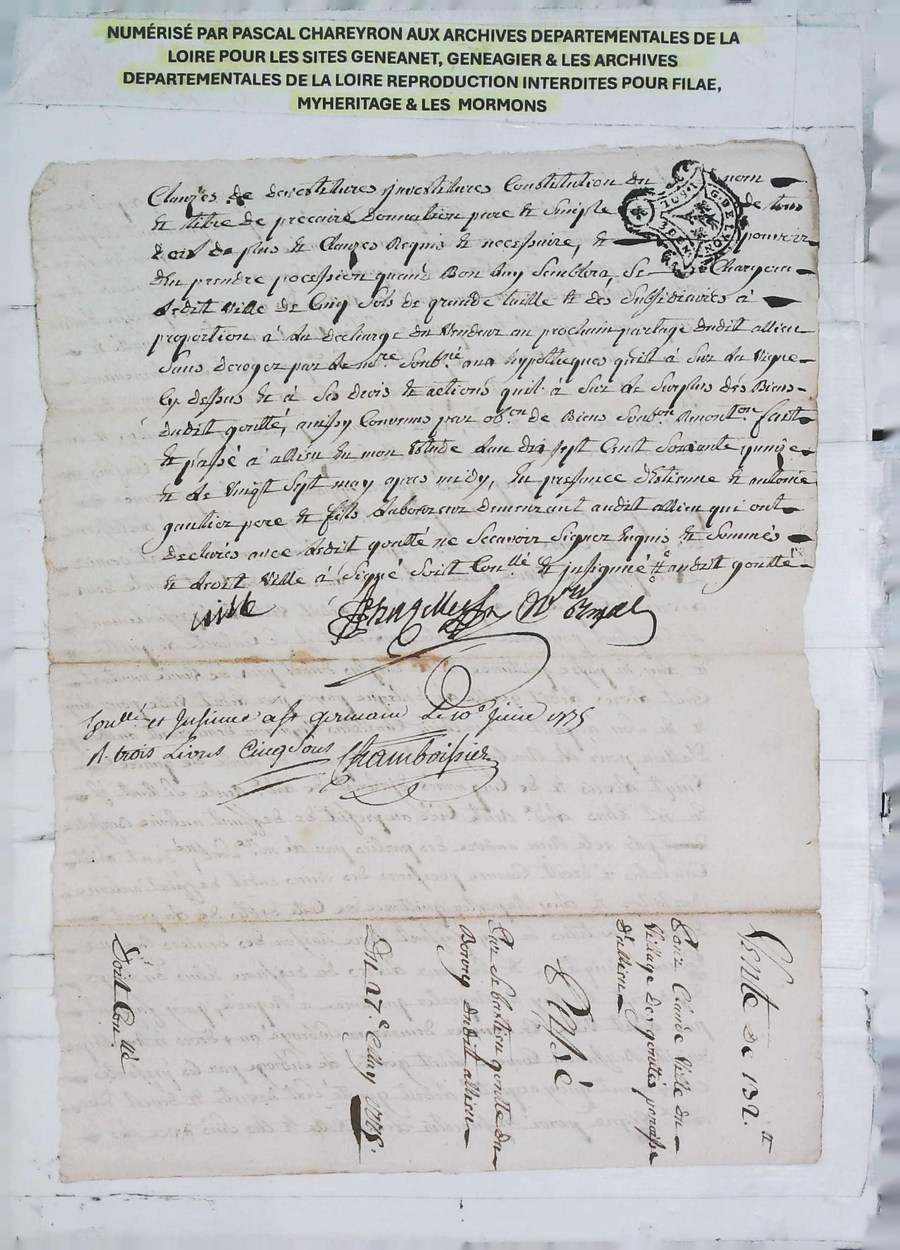 NUMÉRISÉ PAR PASCAL CHAREYRON AUX ARCHIVES DEPARTEMENTALES DE LA
LOIRE POUR LES SITES GENEANET, GENEAGIER & LES ARCHIVES
DEPARTEMENTALES DE LA LOIRE REPRODUCTION INTERDITES POUR FILAE,
MYHERITAGE & LES MORMONS
Clauzes de devestitures investitures Constitution du nom
G. DE LYON
3 DEN
& titre de precaire donnation pure & Simple de tous
droit de plus & Clauzes Requis & necessaire, & pouvoir
d'en prendre pocession quand Bon luy Semblera, Se Chargeant
ledit Ville de Cinq Sols de grande taille & des Subsidiaires à
proportion à la decharge du Vendeur au prochain partage dudit allieu
Sans deroger par le no.re Soub.né aux hypotteques quil à Sur la Vigne
Cy dessus & à Ses droits & actions quil à Sur le Surplus des Biens
dudit goutté, ainssy Convenus par ob.on de Biens Soub.on Renont.on fait
& passé à allieu En mon Etude L'an dix sept Cent Soixante quinze
& le Vingt Sept may apres midy, En presance d'Estienne & antoine
gautier pere & fils Laboureur demeurant audit allieu qui ont
declarés avec ledit goutté ne Scavoir Signer Enquis & Sommés
& ledit Ville à Signé Soit Con.llé & insignué audit goutté
ville
Con.llé et Insinué a St germain Le 10.e Juin 1775
R. trois Livres Cinq Sous Chamboissier
Vente de 132.tt
Pour Claude Ville du
Village des gouttes paroisse
d'allieu
Passé
Par Sebastien goutte du
Bourg dudit allieu
Du 27.e May 1775.
Soit Con.llé